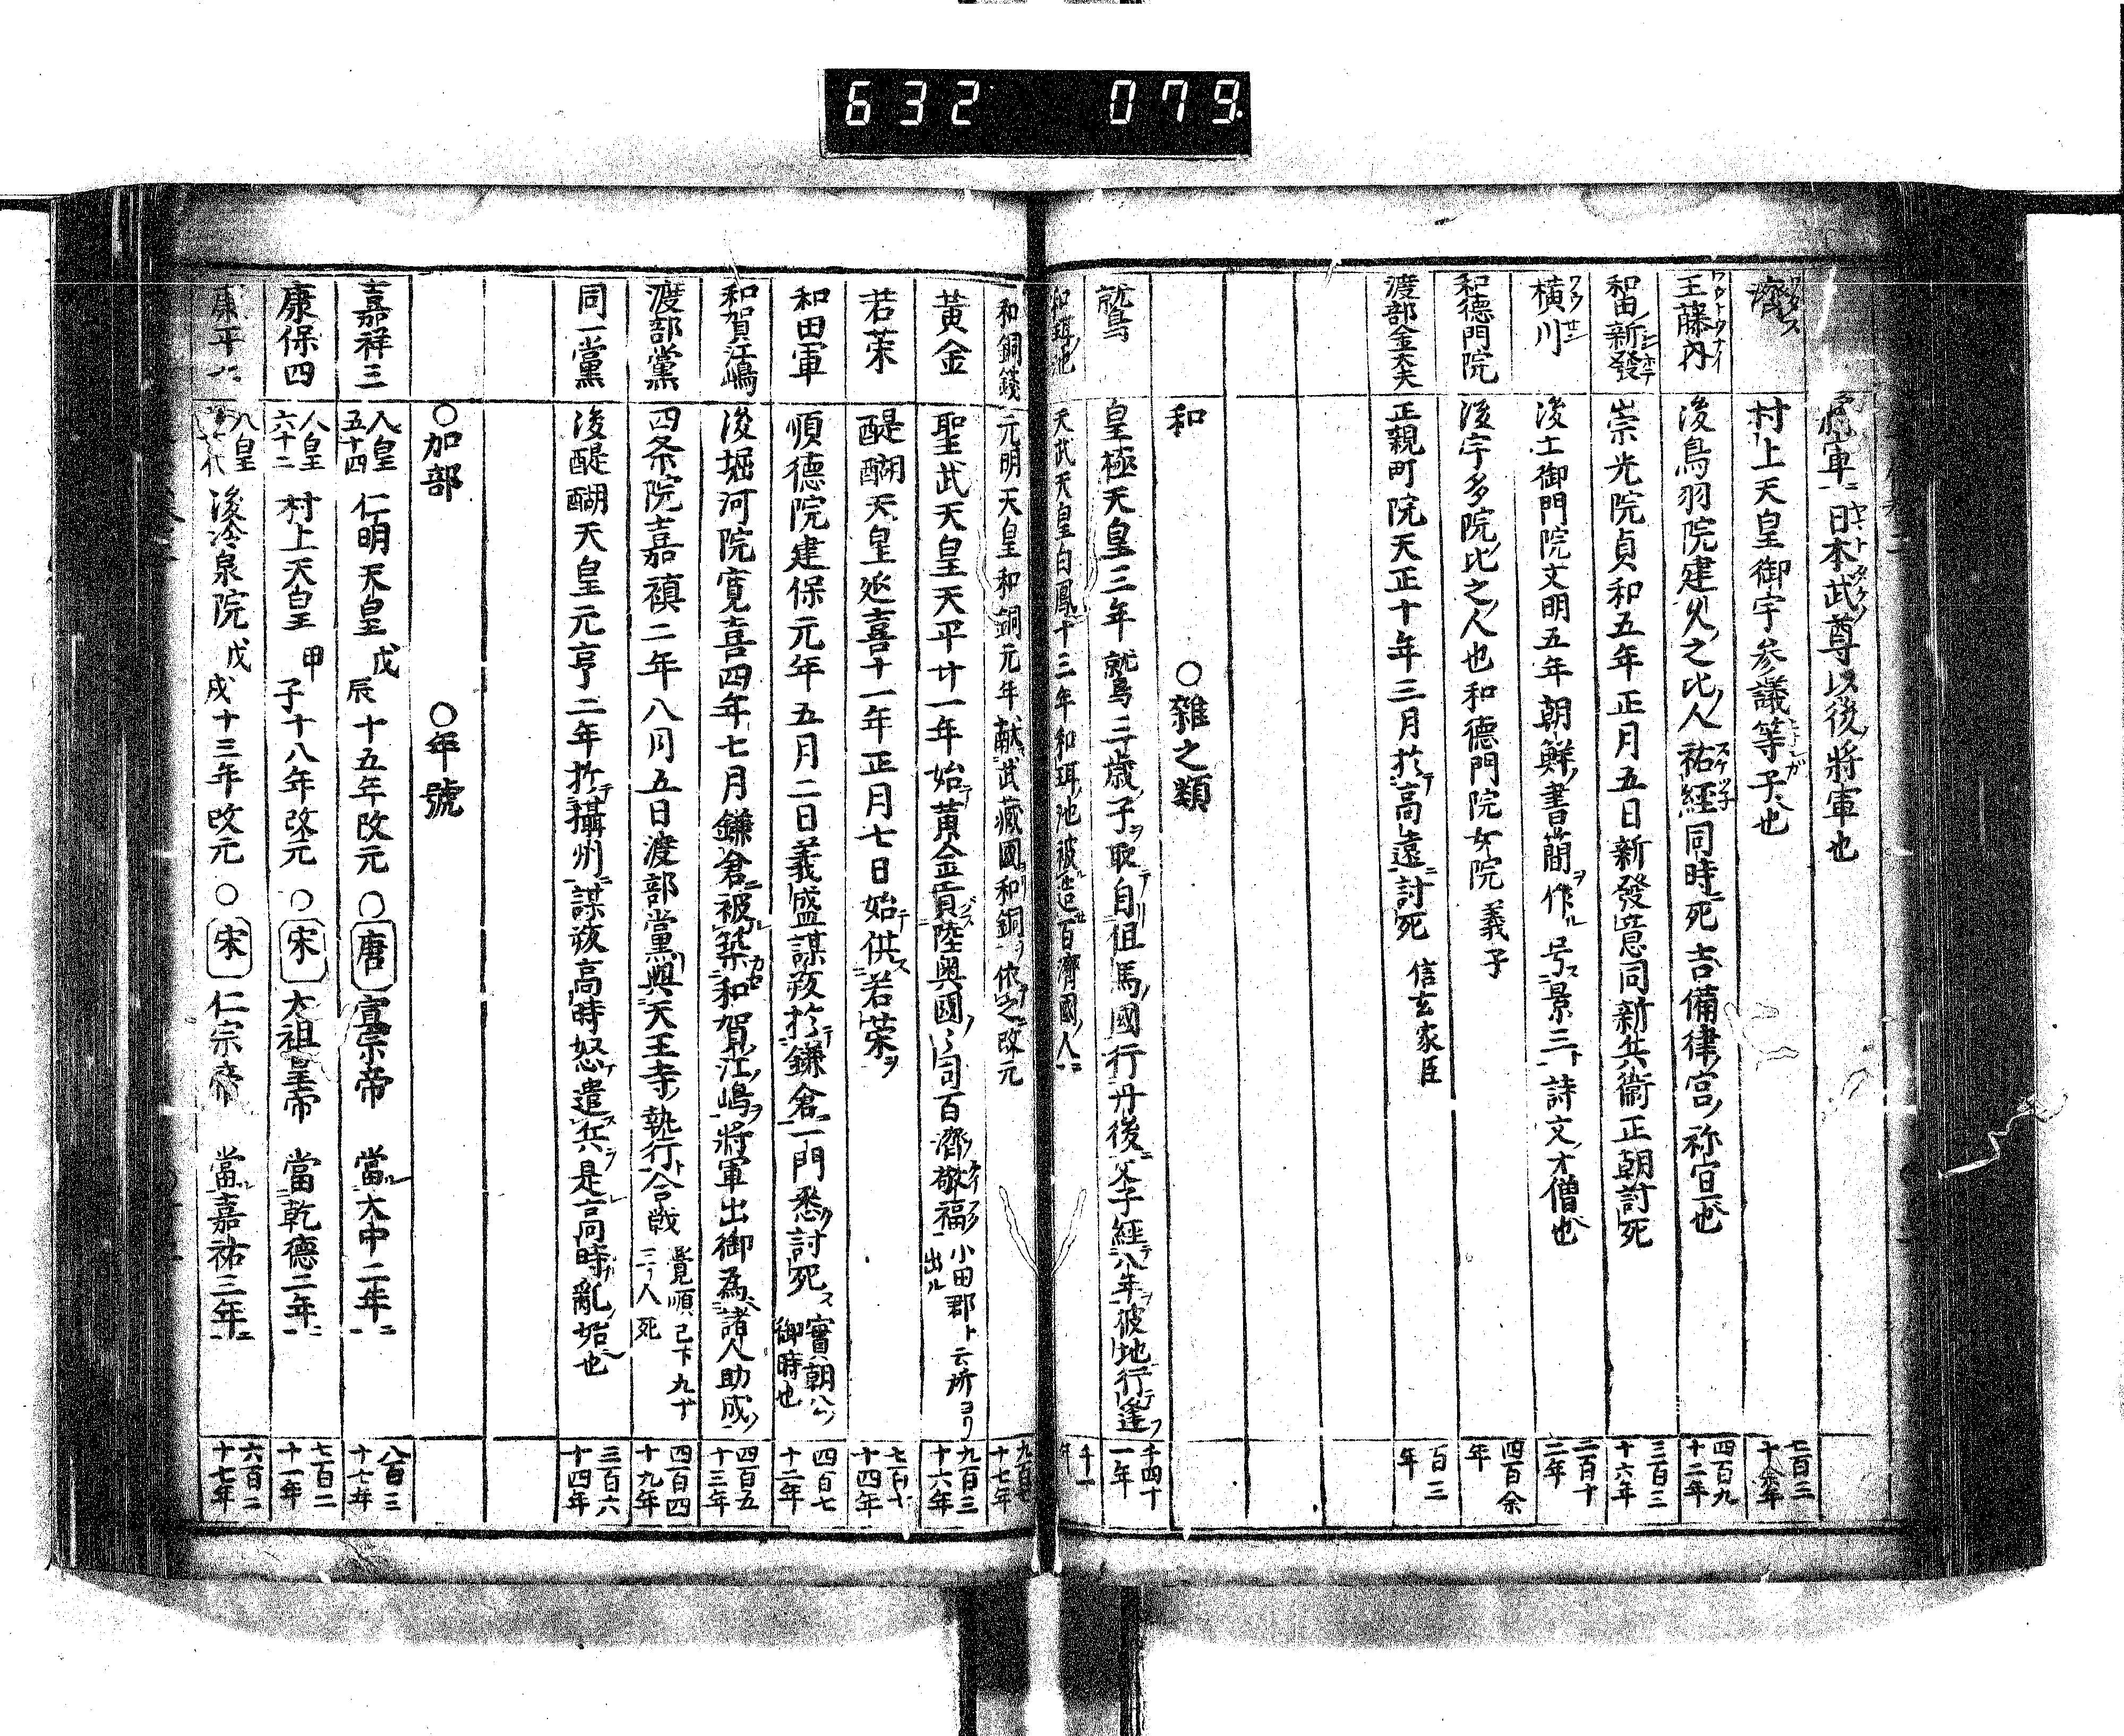 632 079
將軍ニ日本武尊以後ノ將軍也
濟 村上天皇御宇参議等ガ子也 七百三十八年
王藤内 後鳥羽院建久之比ノ人祐経同時死 吉備津宮ノ祢宜也 四百九十二年
和田新發 崇光院貞和五年正月五日新發意同新兵衞正朝討死 三百三十六年
横川 後土御門院文明五年朝鮮ノ書簡ヲ作ル 号ス景三ト 詩文ノ才僧也 二百十二年
和德門院 後宇多院比之人也和德門院女院 義子 四百余年
渡部金太夫 正親町院天正十年三月於高遠ニ討死 信玄家臣 百三年
和 〇雜之類
鷲 皇極天皇三年鷲三歳ノ子ヲ取テ自但馬ノ國行丹後ニ父子経テ八年ヲ彼地行テ逢フ 千四十一年
和珥池 天武天皇白鳳十三年和珥ノ池被造百濟國ノ人ニ 千一年
和銅錢 元明天皇和銅元年献武藏國和銅ヲ依之改元 九百七十七年
黄金 聖武天皇天平廿一年始テ黄金貢陸奥國ノ國司百濟敬福 小田郡ト云所ヨリ出ル 九百三十六年
若菜 醍醐天皇延喜十一年正月七日始テ供ス若菜ヲ 七百七十四年
和田軍 順德院建保元年五月二日義盛謀叛於テ鎌倉ニ一門悉ク討死ス 實朝公ノ御時也 四百七十二年
和賀江嶋 後堀河院寛喜四年七月鎌倉ニ被ル築和賀江ノ嶋ヲ將軍出御為諸人助成ノ 四百五十三年
渡部黨 四条院嘉禎二年八月五日渡部黨與天王寺ノ執行ト合戰 覺順已下九十三人死 四百四十九年
同一黨 後醍醐天皇元亨二年於テ攝州ニ謀叛高時怒テ遣ス兵ヲ是高時ガ亂ノ始也 三百六十四年
〇加部 〇年號
嘉祥三 人皇五十四 仁明天皇 戊辰十五年改元 〇唐 宣宗帝 當ル大中二年ニ 八百三十七年
康保四 人皇六十二 村上天皇 甲子十八年改元 〇宋 太祖皇帝 當乾德二年ニ 七百二十一年
康平八 人皇 後冷泉院 戊戌十三年改元 〇宋 仁宗帝 當ル嘉祐三年ニ 六百二十七年